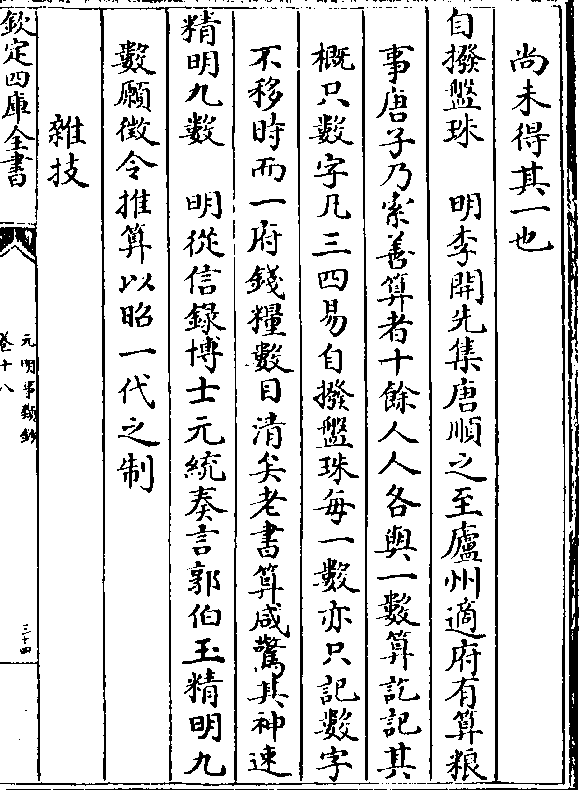 尚未得其一也
自撥盤珠　明李開先集唐順之至廬州適府有算粮
事唐子乃索善算者十餘人人各與一數算訖記其
概只數字凡三四易自撥盤珠每一數亦只記數字
不移時而一府錢糧數目清矣老書算咸驚其神速
精明九數　明從信錄博士元統奏言郭伯玉精明九
數願徵令推算以昭一代之制
雜技
欽定四庫全書
元明事類鈔
卷十八
三十四